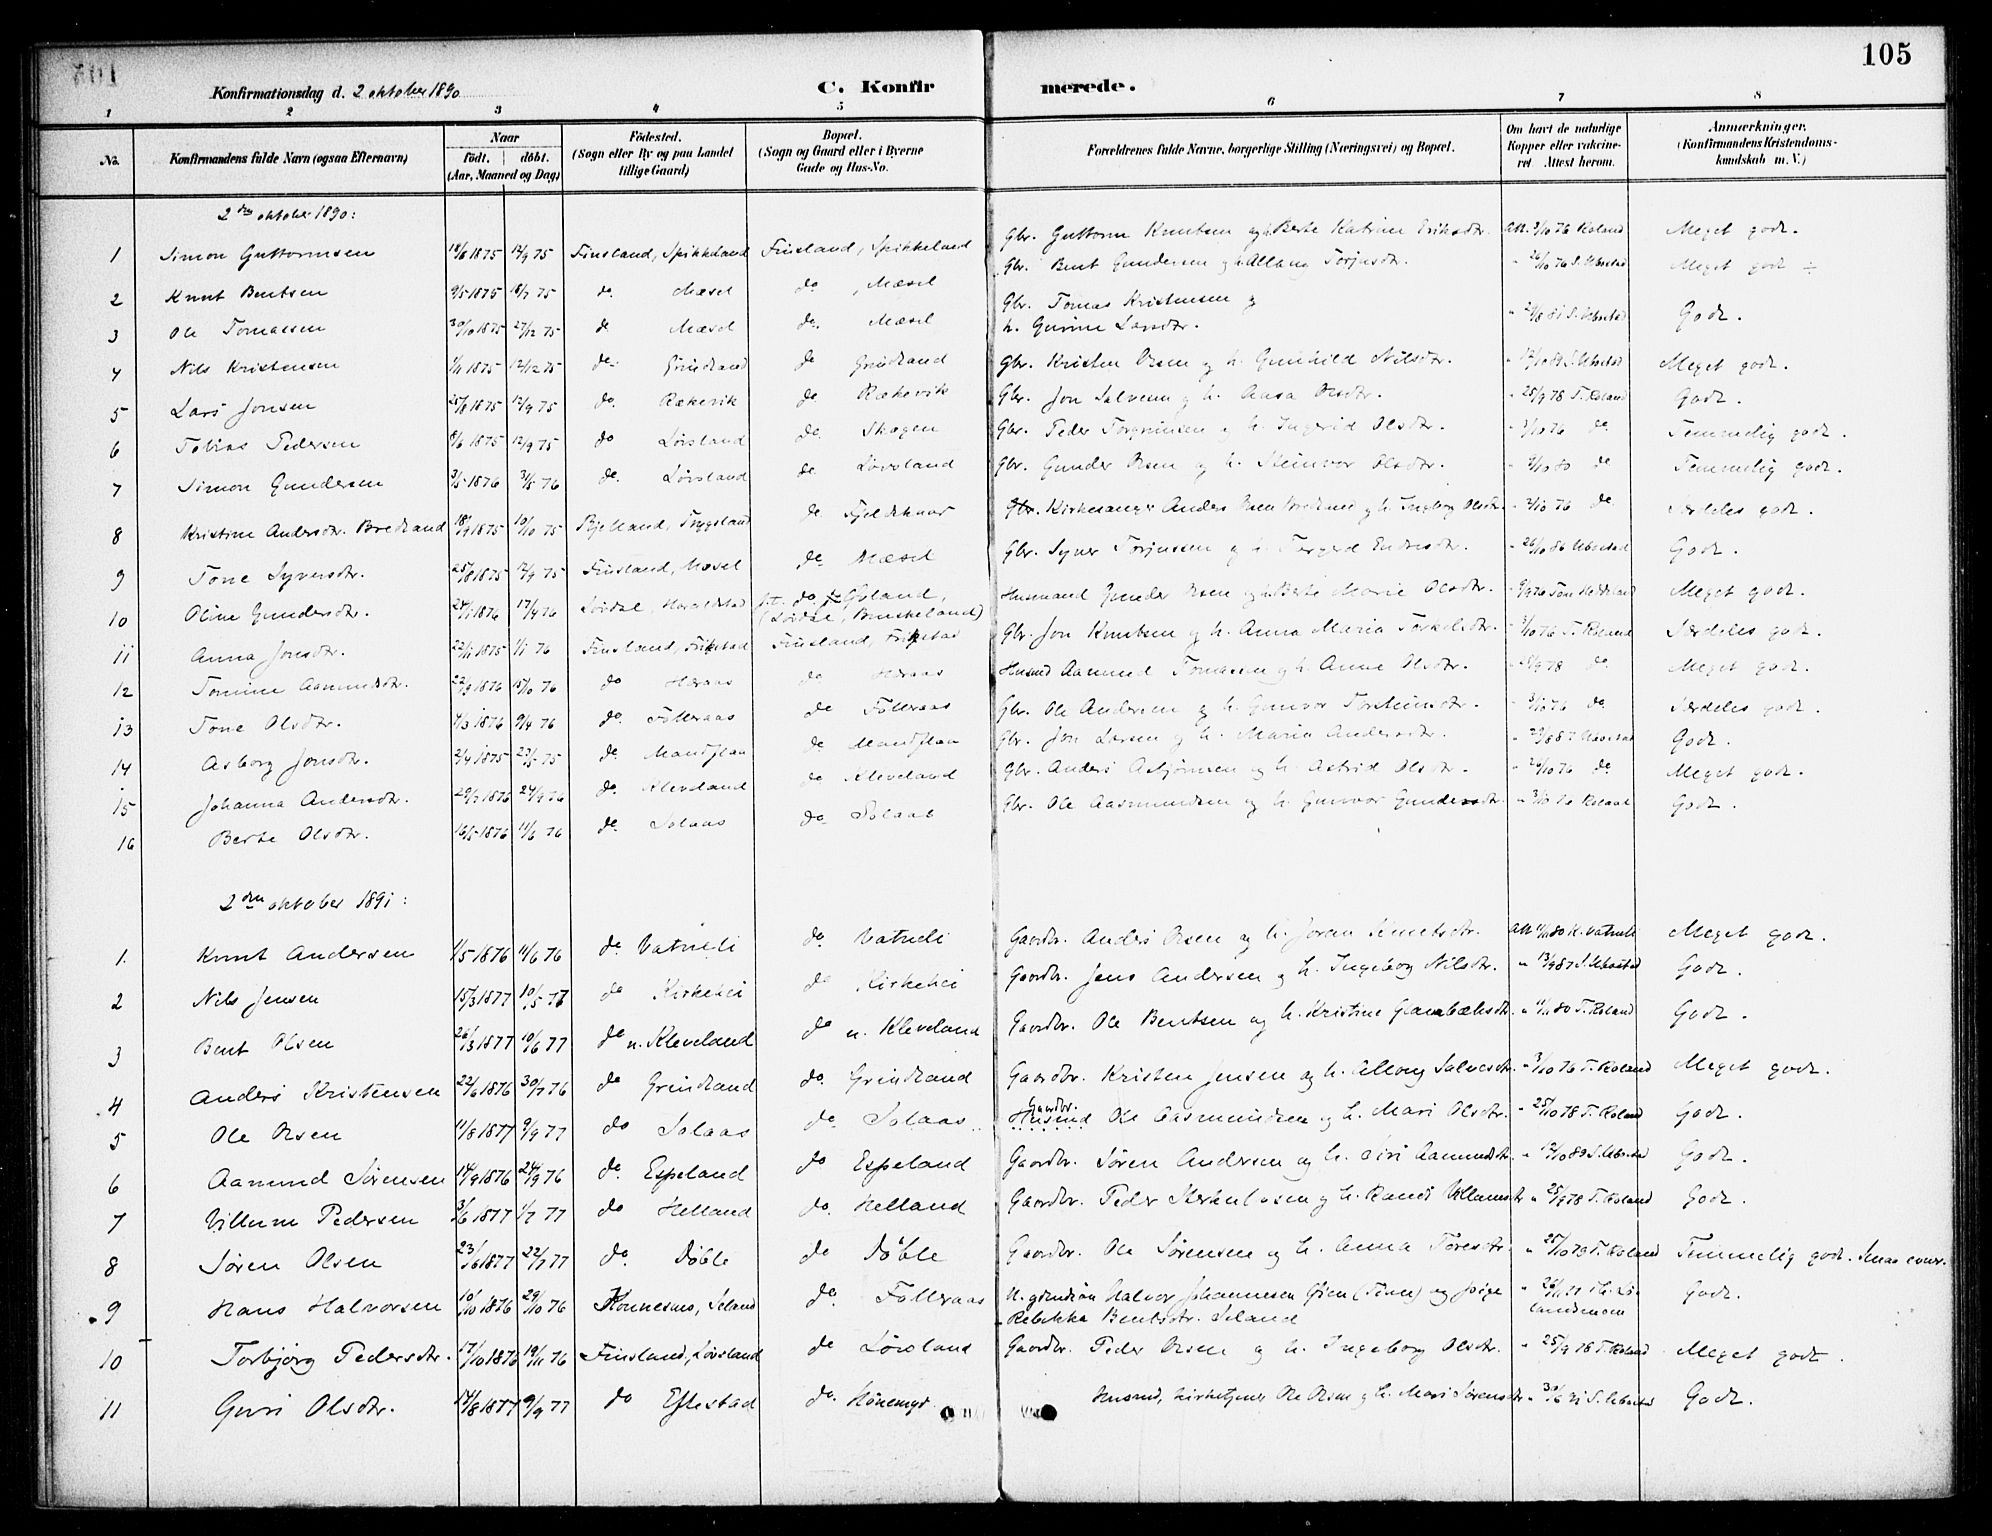 105
Konfirmationsdag d. 2 oktober 1890
C. Konfirmerede.
1 2 3 4 5 6 7 8
No. Konfirmandens fulde Navn (ogsaa Efternavn) Naar født. døbt. (Aar, Maaned og Dag) Födested. (Sogn eller By og paa Landet tillige Gaard) Bopæl. (Sogn og Gaard eller i Byerne Gade og Hus-No. Forældrenes fulde Navne, borgerlige Stilling (Næringsvei) og Bopæl. Om havt de naturlige Kopper eller vakcineret. Attest herom. Anmærkninger. (Konfirmandens Kristendomskundskab m. V.)
2den oktober 1890:
1 Simon Guttormsen 18/8 1875 12/9 75 Finsland, Spikkeland Finsland, Spikkeland Gbr. Guttorm Knutsen og h. Berte Katrine Eriksdtr. Att. 3/10 76 Roland Meget godt.
2 Knut Bentsen 9/5 1875 18/7 75 do. Mæsel do, Mæsel Gbr. Bent Gundersen og h. Allaug Torjusdtr. " 26/10 76 S. Ubostad Meget godt ÷
3 Ole Tomassen 30/10 1875 27/12 75 do Mæsel do. Mæsel Gbr. Tomas Kristensen og h. Gurine Larsdtr. " 24/8 81 S. Ubostad Godt.
4 Nils Kristensen 1/11 1875 12/12 75 do. Grindland do Grindland Gbr. Kristen Olsen og h. Gunhild Nilsdtr. " 12/10 89 S. Ubostad Meget godt.
5 Lars Jonsen 25/8 1875 12/9 75 do. Rækevik do Rækevik Gbr. Jon Salvesen og h. Aasa Olsdtr. " 25/9 78 T. Roland Godt.
6 Tobias Pedersen 8/6 1875 12/9 75 do Lövsland do. Skogen Gbr. Peder Torgrimsen og h. Ingerid Olsdtr. " 3/10 76 do. Temmelig godt.
7 Simon Gundersen 3/5 1876 31/5 76 do. Lövsland do. Lövsland Gbr. Gunder Olsen og h. Steinvor Olsdtr. " 2/10 80 do Temmelig godt.
8 Kristine Andersdtr. Bredland 18/9 1875 10/10 75 Bjelland, Trygsland do. Fjeldknar Gbr. Kirkesanger Anders Olsen Bredland og h. Ingeborg Olsdtr. " 3/10 76 do. Særdeles godt.
9 Tone Syversdtr. 25/8 1875 12/9 75 Finsland, Mæsel do. Mæsel Gbr. Syver Torjussen og h. Torgerd Endresdtr. " 26/10 86 Ubostad Godt.
10 Oline Gundersdtr. 24/1 1876 17/4 76 Lövdal, Heraldstad do Goland, Husmand Gunder Olsen og h. Berte Marie Olsdtr. Meget godt.
11 Anna Jonsdtr. 22/11 1875 1/1 76 Finsland, Frikstad Finsland, Frikstad Gbr. Jon Knutsen og h. Anna Maria Torkelsdtr. " 3/10 76 T. Roland Særdeles godt.
12 Tomine Aamundsdtr. 22/9 1876 15/10 76 do Heraas do Heraas Husmd Aamund Tomassen og h. Anne Olsdtr. do. Meget godt.
13 Tone Olsdtr. 4/3 1876 9/4 76 do. Fölleraas do Fölleraas Gbr. Ole Andersen og h. Gunvor Torsteinsdtr. " 3/10 76 do. Særdeles godt.
14 Asborg Jonsdtr. 2/4 1875 23/5 75 do. Mandflaa do Mandflaa Gbr. Jon Larsen og h. Maria Andersdtr. " 23/8 87 Ubostad Godt.
15 Johanna Andersdtr. 29/7 1876 24/9 76 do. Kleveland do Kleveland Gbr. Anders Asbjörnsen og h. Astrid Olsdtr. " 26/10 76 do. Meget godt.
16 Berte Olsdtr. 16/5 1876 11/6 76 do. Solaas do. Solaas Gbr. Ole Aasmundsen og h. Gunvor Gundersdtr. " 3/10 76 Roland Godt.
2den oktober 1891:
1. Knut Andersen 1/5 1876 11/6 76 do. Vatneli do. Vatneli Gaardbr. Anders Olsen og h. Joran Knutsdtr. Att 11/11 80 K. Vatneli Meget godt.
2 Nils Jensen 15/3 1877 10/5 77 do Kirkehei do Kirkehei Gaardbr. Jens Andersen og h. Ingeborg Nilsdtr. " 13/9 87 S. Ubostad Godt.
3 Bent Olsen 26/3 1877 10/6 77 do n. Kleveland do n. Kleveland Gaardbr. Ole Bentsen og h. Kristine Glambæksdtr. " 11/11 80 T. Roland Godt.
4 Anders Kristensen 22/6 1876 30/7 76 do Grindland do. Grindland Gaardbr. Kristen Jensen og h. Allaug Salvesdtr. " 3/10 76 T. Roland Meget godt.
5 Ole Olsen 11/8 1877 9/9 77 do Solaas do. Solaas Gaardbr. Husmd Ole Aasmundsen og h. Mari Olsdtr. " 25/10 78 T. Roland Godt.
6 Aamund Sörensen 14/9 1876 24/9 76 do. Espeland do Espeland Gaardbr. Sören Andersen og h. Siri Aamundsdtr. " 12/10 89 S. Ubostad Godt.
7 Villum Pedersen 3/6 1877 1/7 77 do Helland do. Helland Gaardbr. Peder og h. Randi Villumsdtr. " 25/9 78 T. Roland Godt.
8 Sören Olsen 23/6 1877 22/7 77 do. Döble do Döble Gaardbr. Ole Sörensen og h. Anna Toresdtr. " 25/10 78 T. Roland Temmelig godt.
9 Hans Halvorsen 10/10 1876 29/10 76 Konnesmo, Seland do. Fölleraas U. Halvor Johannesen og pige Rebekka Bentsdtr. Seland Godt.
10 Torbjörg Pedersdtr. 17/10 1876 19/11 76 Finsland, Lövsland do Lövsland Gaardbr. Peder Olsen og h. Ingeborg Olsdtr. " 25/9 78 T. Roland Meget godt.
11 Guri Olsdtr. 14/8 1877 9/9 77 do Eftestad do. Hönemyr Husmd, kirketjener Ole Olsen og h. Mari Sörensdtr. S. Ubostad Godt.